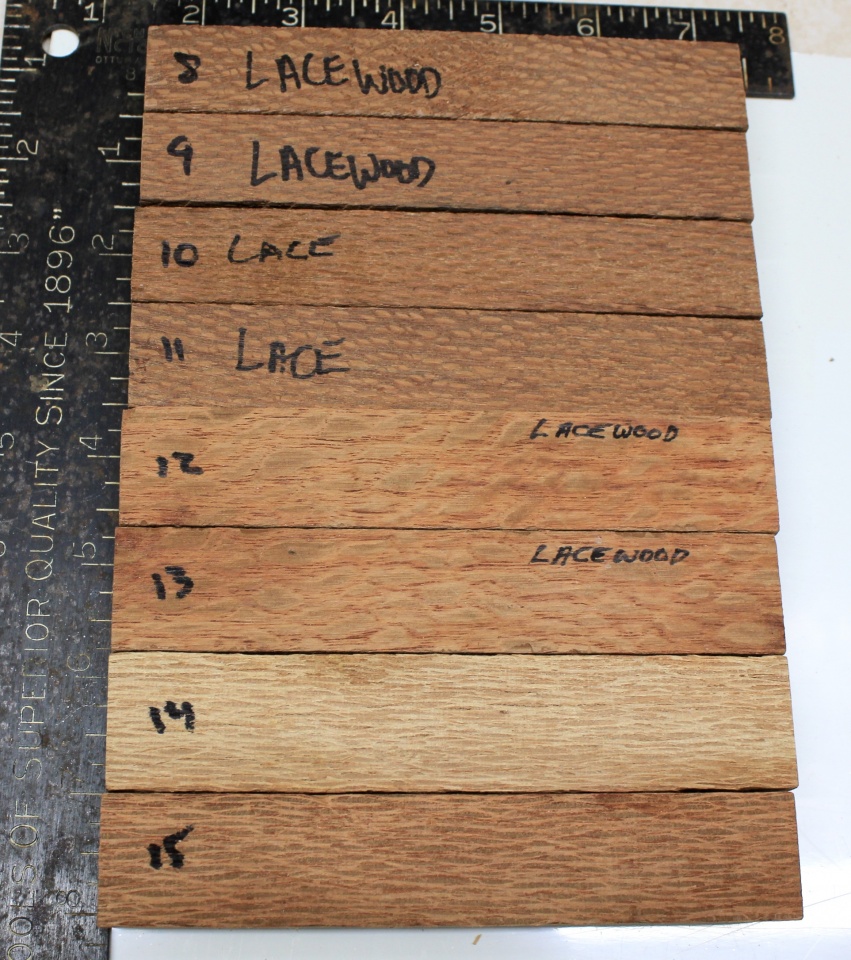 1 2 3 4 5 6 7 8
8 LACEWOOD
9 LACEWOOD
10 LACE
11 LACE
12 LACEWOOD
13 LACEWOOD
14
15
1 2 3 4 5 6 8
1 2 3 4 5
OOLS OF SUPERIOR QUALITY SINCE 1896"